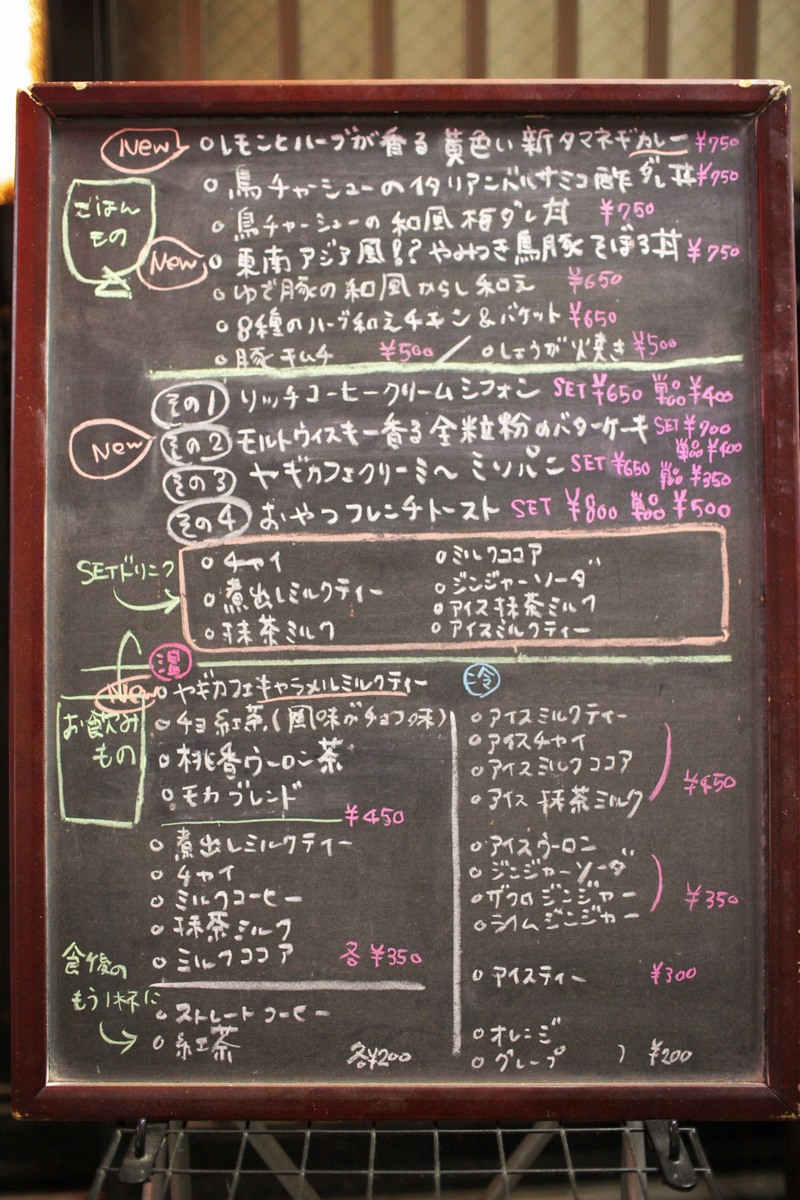 New ○レモンとハーブが香る黄色い新タマネギカレー ¥750
○鳥チャーシューのイタリアンバルサミコ酢ダレ丼 ¥750
ごはんもの
○鳥チャーシューの和風梅ダレ丼 ¥750
New ○東南アジア風!?やみつき鳥豚そぼろ丼 ¥750
○ゆで豚の和風からし和え ¥650
○8種のハーブ和えチキン&バケット ¥650
○豚キムチ ¥500 / ○しょうが焼き ¥500
その1 リッチコーヒークリームシフォン SET ¥650 単品 ¥400
New その2 モルトウィスキー香る全粒粉のバターケーキ SET ¥700 単品 ¥400
その3 ヤギカフェクリーミ〜ミソパン SET ¥650 単品 ¥350
その4 おやつフレンチトースト SET ¥800 単品 ¥500
SETドリンク
○チャイ ○ミルクココア
○煮出しミルクティー ○ジンジャーソーダ
○抹茶ミルク ○アイス抹茶ミルク
○アイスミルクティー
お飲みもの
温
New ○ヤギカフェキャラメルミルクティー
○チョコ紅茶(風味がチョコ味)
○桃香ウーロン茶
○モカブレンド
¥450
○煮出しミルクティー
○チャイ
○ミルクコーヒー
○抹茶ミルク
○ミルクココア 各¥350
食後の
もう1杯に
○ストレートコーヒー
○紅茶 各¥200
冷
○アイスミルクティー
○アイスチャイ
○アイスミルクココア
○アイス抹茶ミルク
¥450
○アイスウーロン
○ジンジャーソーダ
○ザクロジンジャー
○ライムジンジャー
¥350
○アイスティー ¥300
○オレンジ
○グレープ ) ¥200